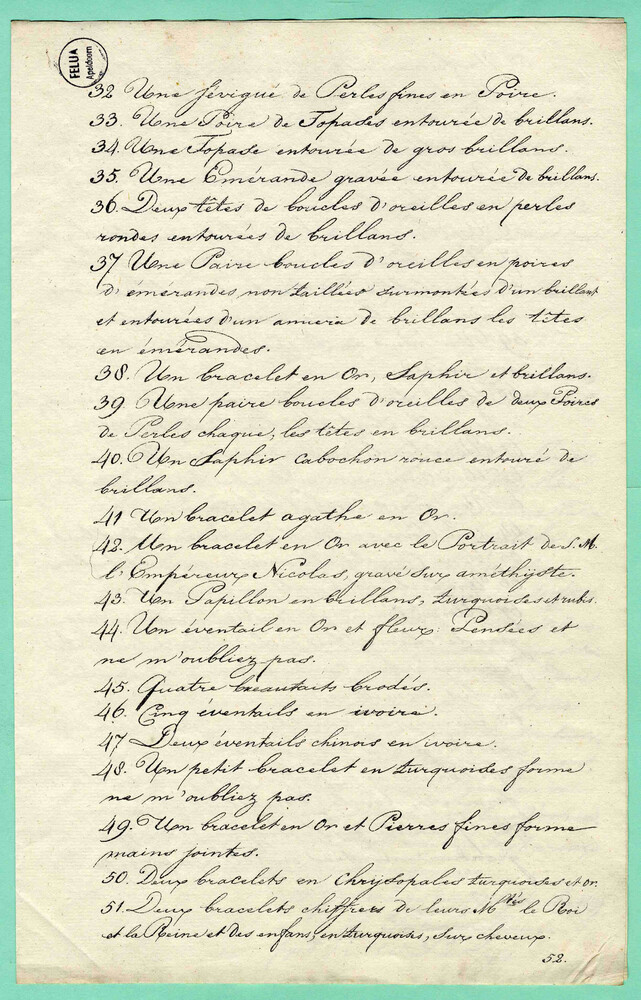 FELUA
Apeldoorn
32 Une sévigué de Perles fines en Poire.
33. Une Poire de Topases entourée de brillans.
34. Une Topase entourée de gros brillans.
35. Une Emérande gravée entourée de brillans.
36. Deux têtes de boucles d'oreilles en perles
rondes entourées de brillans.
37 Une Paire boucles d'oreilles en poires
d'émérandes non taillées surmontées d'un brillant
et entourées d'un de brillans les têtes
en émérandes.
38. Un bracelet en Or, Saphir et brillans.
39. Une paire boucles d'oreilles de deux Poires
de Perles chaque, les têtes en brillans.
40. Un Saphir cabochon entouré de
brillans.
41 Un bracelet agathe en Or.
42. Un bracelet en Or avec le Portrait de S. M.
l'Empéreur Nicolas, gravé sur améthijste.
43. Un Papillon en brillans, turquoises et rubis.
44. Un éventail en Or et fleurs: Pensées et
ne m'oubliez pas.
45. Quatre brodés.
46. Cinq éventails en ivoire.
47 Deux éventails chinois en ivoire.
48. Un petit bracelet en turquoises forme
ne m'oubliez pas.
49. Un bracelet en Or et Pierres fines forme
mains jointes.
50. Deux bracelets en Chrijsopales turquoises et or.
51. Deux bracelets chiffres de leurs Mtés le Roi
et la Reine et des enfans, en turquoises, sur cheveux.
52.